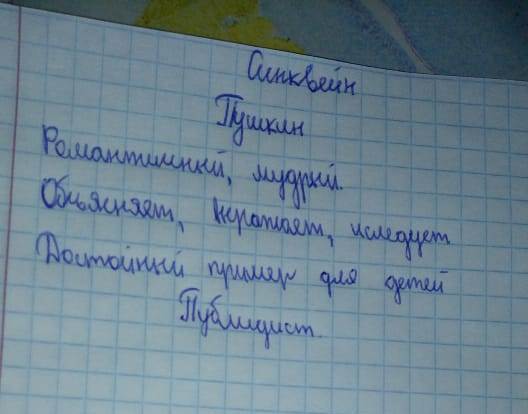 Синквейн
Пушкин
Романтичный, мудрый.
Объясняет, исследует
Достойный пример для детей
Публицист.